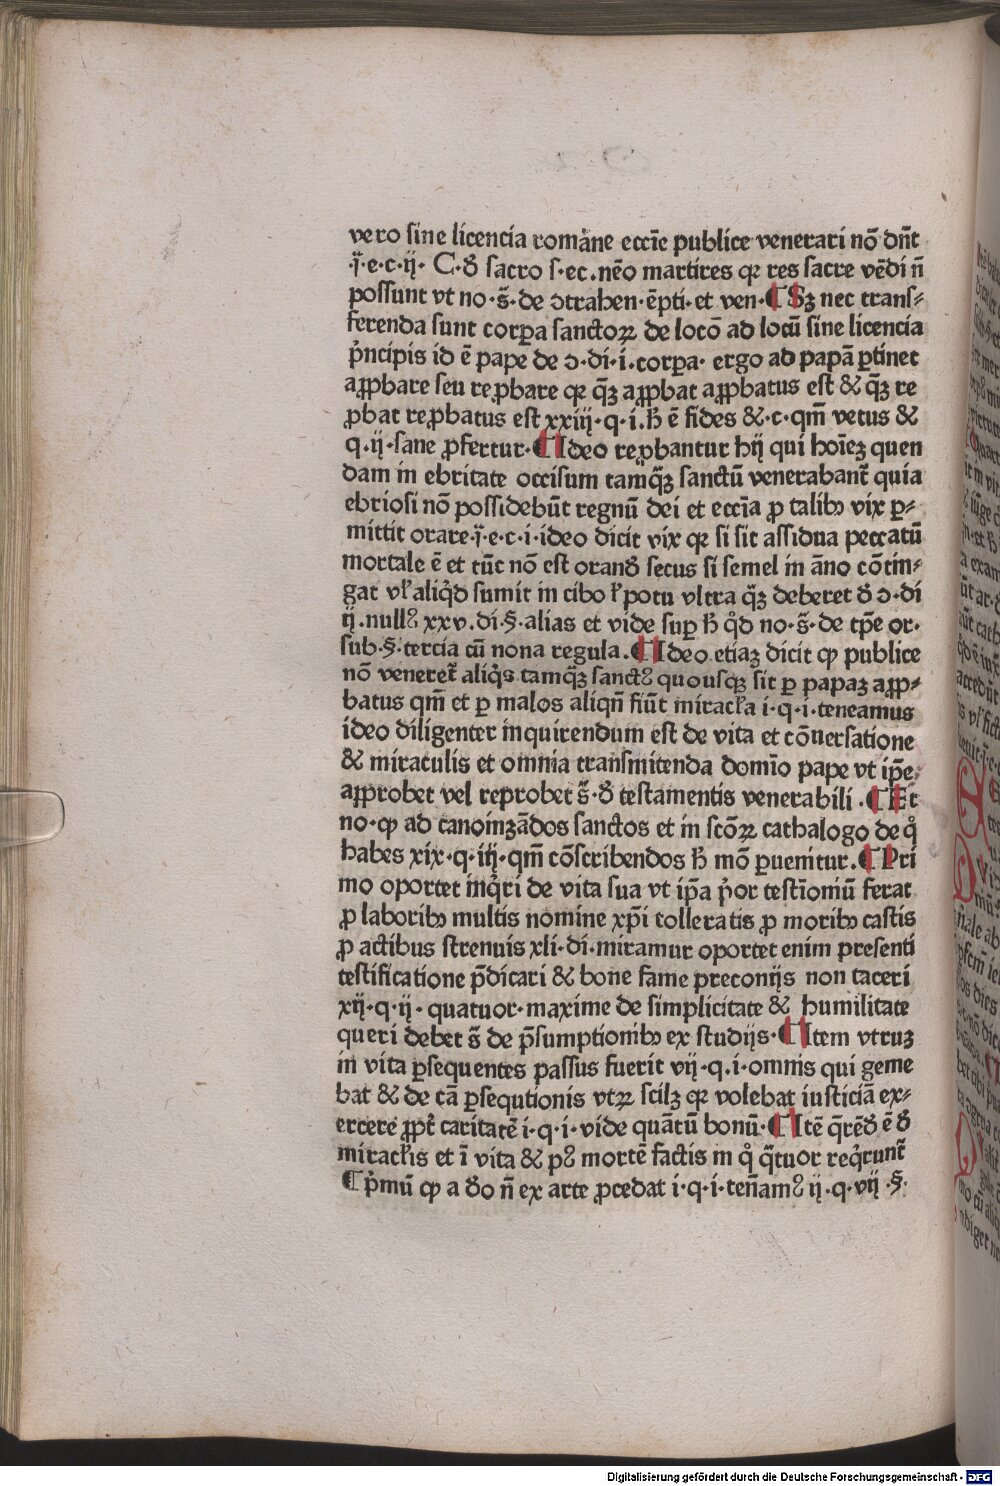 vero sine licencia romane eccīe publice venerari nō dn̄t
·j̄·e·c·ij· C·đ sacro s·ec·nēo martires qꝛ res sacre vēdi n̄
possunt vt no·s̄·de ↄtrahen·ēpti·et ven·¶ Sꝫ nec trans⸗
ferenda sunt corꝑa sanctoꝝ de locō ad locū sine licencia
p̓ncipis id ē pape de ↄ·di·i·corꝑa· ergo ad papā ꝑtinet
aꝓpbare seu reꝓbare qꝛ q̄ꝫ aꝓpbat aꝓpbatus est & q̄ꝫ re
ꝓbat reꝓbatus est xxiij·q·i·ħ ē fides &·c·qm̄ vetus &
q·ij·sane ꝓfertur·¶ Ideo reꝓbantur hij qui hoīeꝫ quen
dam in ebritate occisum tamq̄ꝫ sanctū venerabant̄ quia
ebriosi nō possidebūt regnū dei et eccīa ꝓ talibꝰ vix ꝑ⸗
mittit orare·j̄·e·c·i·ideo dicit vix qꝛ si sit assidua peccatū
mortale ē et tūc nō est orandū secus si semel in āno cōtin⸗
gat vł aliq̇d sumit in cibo ł potu vltra q̄ꝫ deberet đ ↄ·di
ij·nullꝰ xxv·di·§·alias et vide suꝑ ħ q̇d no·s̄·de tꝑe or·
sub·§·tercia cū nona regula·¶ Ideo etiaꝫ dicit ꝙ publice
nō veneret̄ aliq̇s tamq̄ꝫ sanctꝰ quousqꝫ sit ꝑ papaꝫ aꝓp⸗
batus qm̄ et ꝑ malos aliqn̄ fiūt miracła i·q·i·teneamus
ideo diligenter inquirendum est de vita et cōuersatione
& miraculis et omnia transmitenda domīo pape vt ip̄e
aꝓprobet vel reprobet s̄·đ testamentis venerabili·¶ Et
no·ꝙ ad canoinzādos sanctos et in scōꝝ cathalogo de q̇
habes xix·q·iij·qm̄ cōscribendos ħ mō ꝑuenitur·¶ Pri
mo oportet inq̇ri de vita sua vt ip̄a p̓or testīomiū ferat
ꝓ laboribꝰ multis nomine xp̄i tolleratis ꝓ moribꝰ castis
ꝓ actibus strenuis xli·di·miramur oportet enim presenti
testificatione p̄dicari & bone fame preconijs non taceri
xij·q·ij· quatuor·maxime de simplicitate & humilitate
queri debet s̄ de p̄sumptionibꝰ ex studijs·¶ Item vtruꝫ
in vita ꝑsequentes passus fuerit vij·q·i·omnis qui geme
bat & de cā ꝑsequtionis vtꝝ scilꝫ qꝛ volebat iusticiā ex⸗
ercere ꝓpt̄ caritatē i·q·i·vide quātū bonū·¶ Itē q̄rēđ ē đ
miracłis et ī vita & pꝰ mortē factis in q̇ q̄tuor req̇runt̄
¶ p̓mū ꝙ a đo n̄ ex arte ꝓcedat i·q·i·ten̄amꝰ ij·q·vij·§·
Digitalisierung gefördert durch die Deutsche Forschungsgemeinschaft - DFG